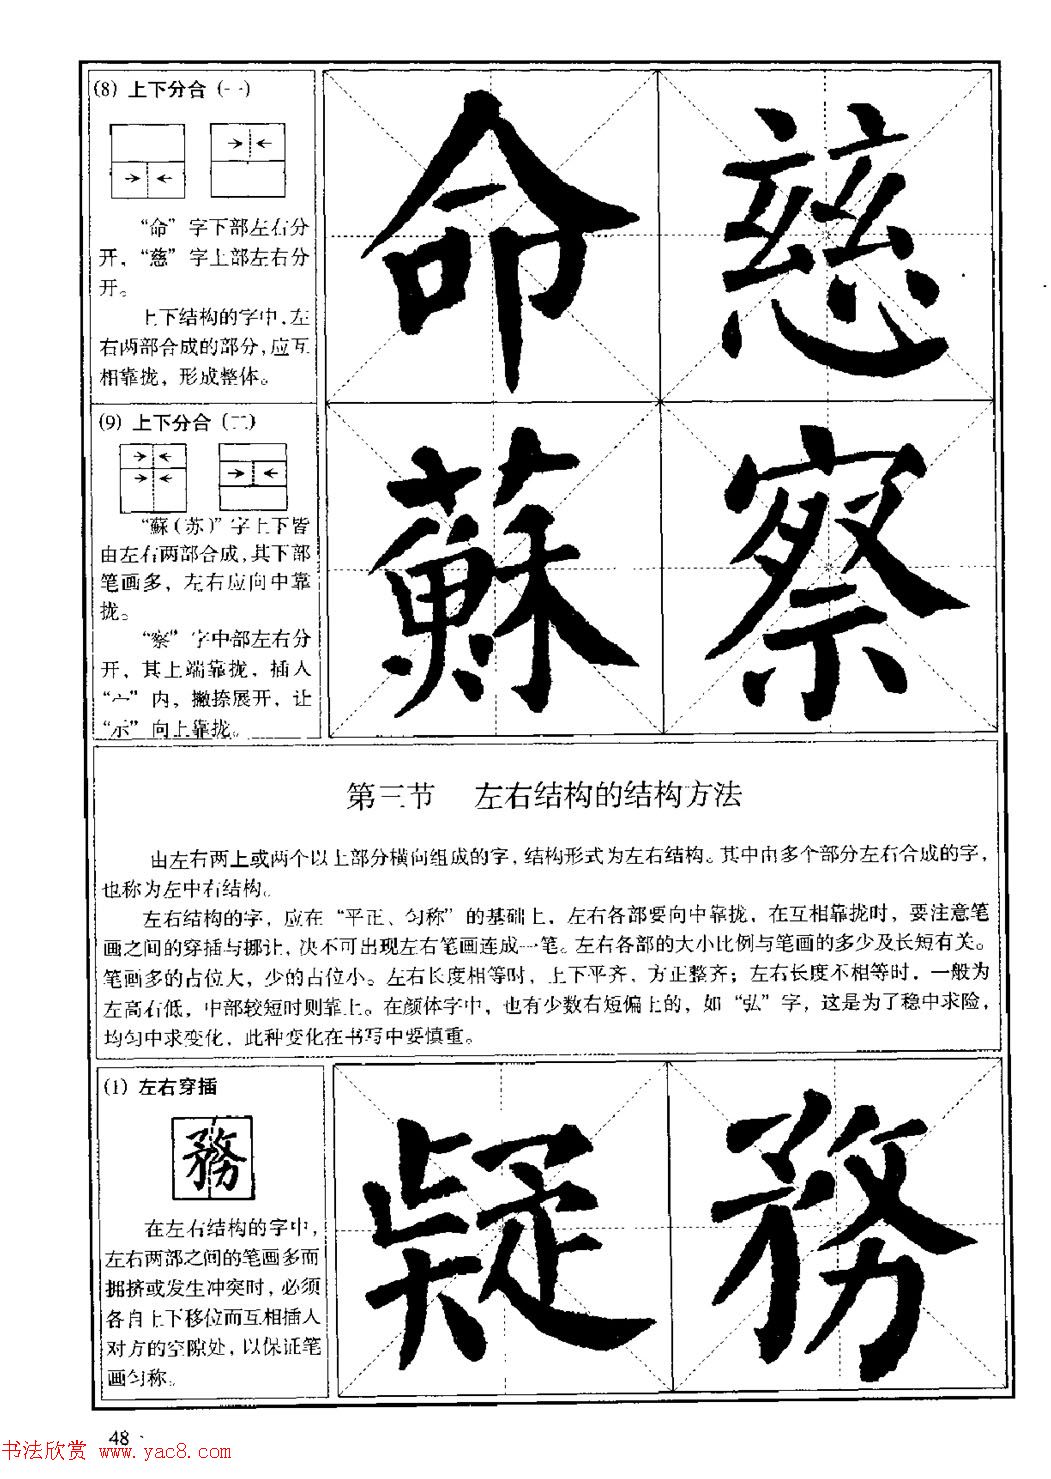 (8) 上下分合 (一)
“命”字下部左右分
开，“慈”字上部左右分
开。
上下结构的字中，左
右两部合成的部分，应互
相靠拢，形成整体。
命 慈
(9) 上下分合 (二)
“蘇(苏)”字上下皆
由左右两部合成，其下部
笔画多，左右应向中靠
拢。
“察”字中部左右分
开，其上端靠拢，插入
“宀”内，撇捺展开，让
“示”向上靠拢。
蘇 察
第三节 左右结构的结构方法
由左右两上或两个以上部分横向组成的字，结构形式为左右结构。其中由多个部分左右合成的字，
也称为左中右结构。
左右结构的字，应在“平正、匀称”的基础上，左右各部要向中靠拢，在互相靠拢时，要注意笔
画之间的穿插与挪让，决不可出现左右笔画连成一笔。左右各部的大小比例与笔画的多少及长短有关。
笔画多的占位大，少的占位小。左右长度相等时，上下平齐，方正整齐；左右长度不相等时，一般为
左高右低，中部较短时则靠上。在颜体字中，也有少数右短偏上的，如“弘”字，这是为了稳中求险，
均匀中求变化，此种变化在书写中要慎重。
(1) 左右穿插
務
在左右结构的字中，
左右两部之间的笔画多而
拥挤或发生冲突时，必须
各自上下移位而互相插入
对方的空隙处，以保证笔
画匀称。
疑 務
48
书法欣赏 www.yac8.com